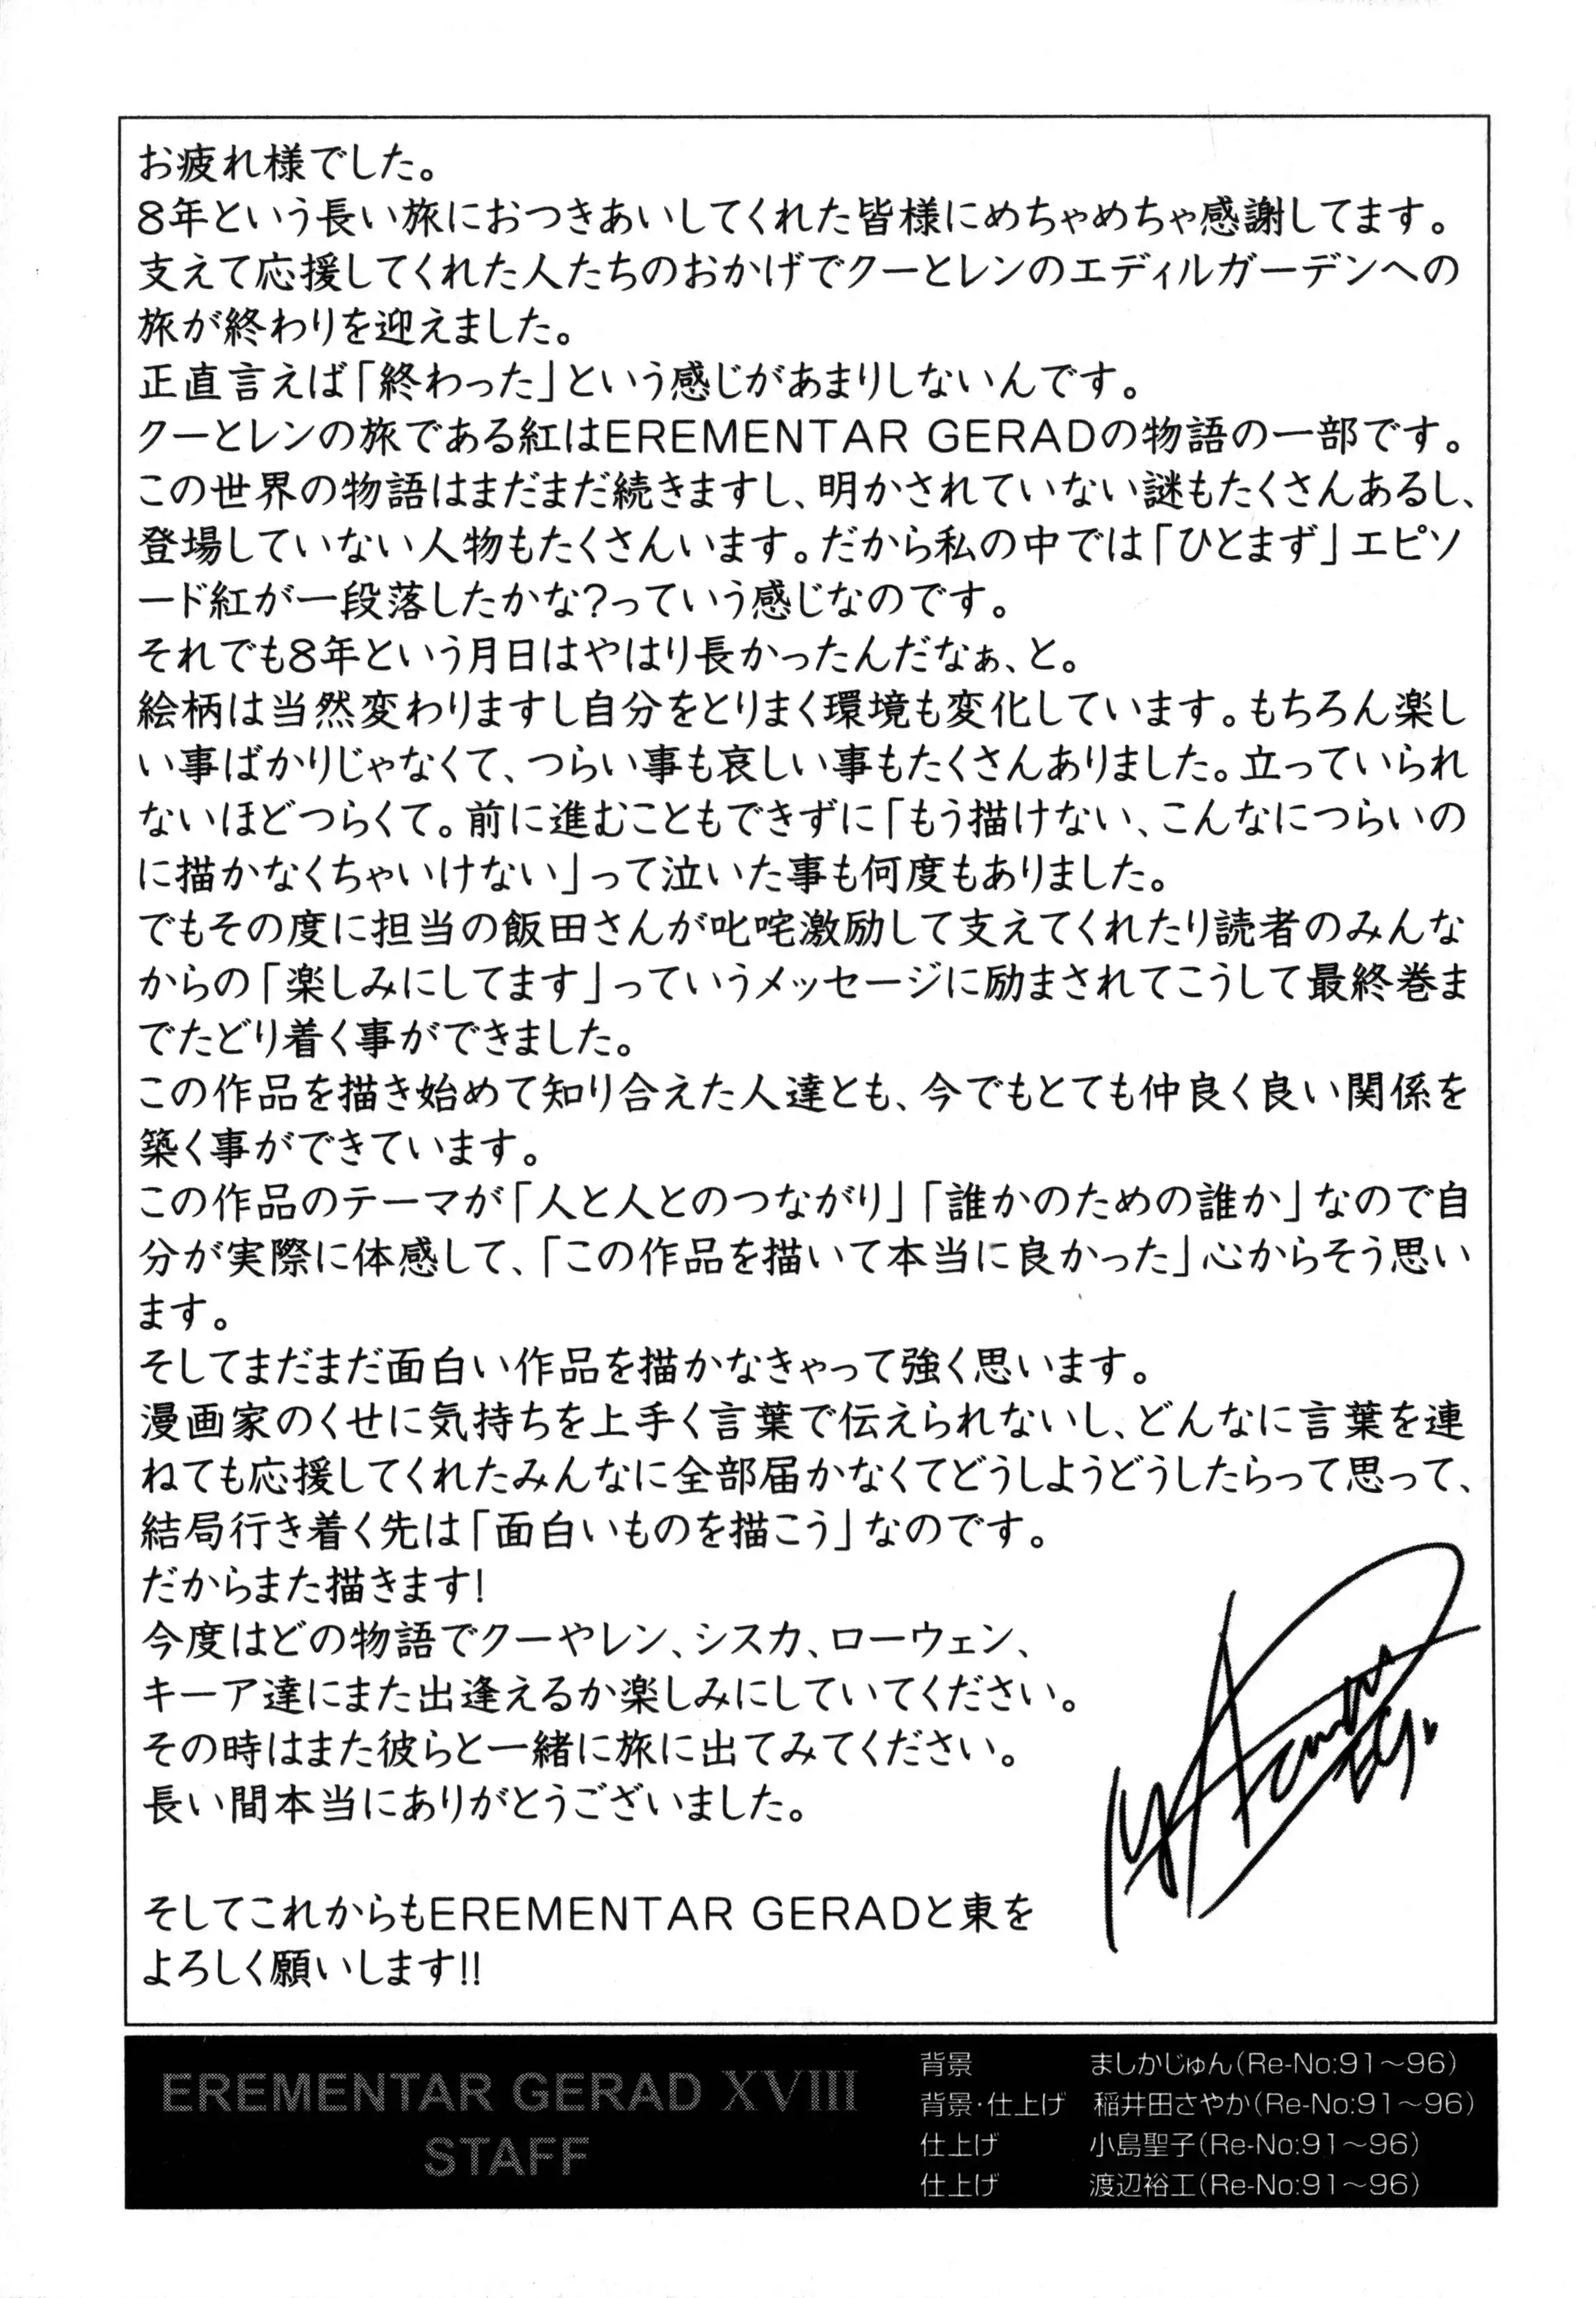 お疲れ様でした。
8年という長い旅におつきあいしてくれた皆様にめちゃめちゃ感謝してます。
支えて応援してくれた人たちのおかげでクーとレンのエディルガーデンへの
旅が終わりを迎えました。
正直言えば「終わった」という感じがあまりしないんです。
クーとレンの旅である紅はEREMENTAR GERADの物語の一部です。
この世界の物語はまだまだ続きますし、明かされていない謎もたくさんあるし、
登場していない人物もたくさんいます。だから私の中では「ひとまず」エピソ
ード紅が一段落したかな?っていう感じなのです。
それでも8年という月日はやはり長かったんだなぁ、と。
絵柄は当然変わりますし自分をとりまく環境も変化しています。もちろん楽し
い事ばかりじゃなくて、つらい事も哀しい事もたくさんありました。立っていられ
ないほどつらくて。前に進むこともできずに「もう描けない、こんなにつらいの
に描かなくちゃいけない」って泣いた事も何度もありました。
でもその度に担当の飯田さんが叱咤激励して支えてくれたり読者のみんな
からの「楽しみにしてます」っていうメッセージに励まされてこうして最終巻ま
でたどり着く事ができました。
この作品を描き始めて知り合えた人達とも、今でもとても仲良く良い関係を
築く事ができています。
この作品のテーマが「人と人とのつながり」「誰かのための誰か」なので自
分が実際に体感して、「この作品を描いて本当に良かった」心からそう思い
ます。
そしてまだまだ面白い作品を描かなきゃって強く思います。
漫画家のくせに気持ちを上手く言葉で伝えられないし、どんなに言葉を連
ねても応援してくれたみんなに全部届かなくてどうしようどうしたらって思って、
結局行き着く先は「面白いものを描こう」なのです。
だからまた描きます!
今度はどの物語でクーやレン、シスカ、ローウェン、
キーア達にまた出逢えるか楽しみにしていてください。
その時はまた彼らと一緒に旅に出てみてください。
長い間本当にありがとうございました。
そしてこれからもEREMENTAR GERADと東を
よろしく願いします!!
EREMENTAR GERAD XVIII
STAFF
背景 ましかじゅん(Re-No:91〜96)
背景・仕上げ 稲井田さやか(Re-No:91〜96)
仕上げ 小島聖子(Re-No:91〜96)
仕上げ 渡辺裕工(Re-No:91〜96)